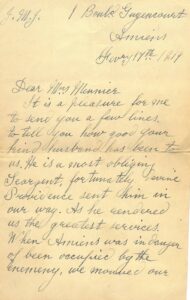 J. M. J.
1 Boul.
Amiens
17th / 1919
Dear Mrs Meunier
It is a pleasure for me
to send you a few lines
to tell you how good your
kind husband has been to
us. He is a most obliging
Seargent, fortunately Divine
Providence sent him in
our way. As he rendered
us the greatest services.
When Amiens was in danger
of been occupied by the
Enemeny, we mouved our